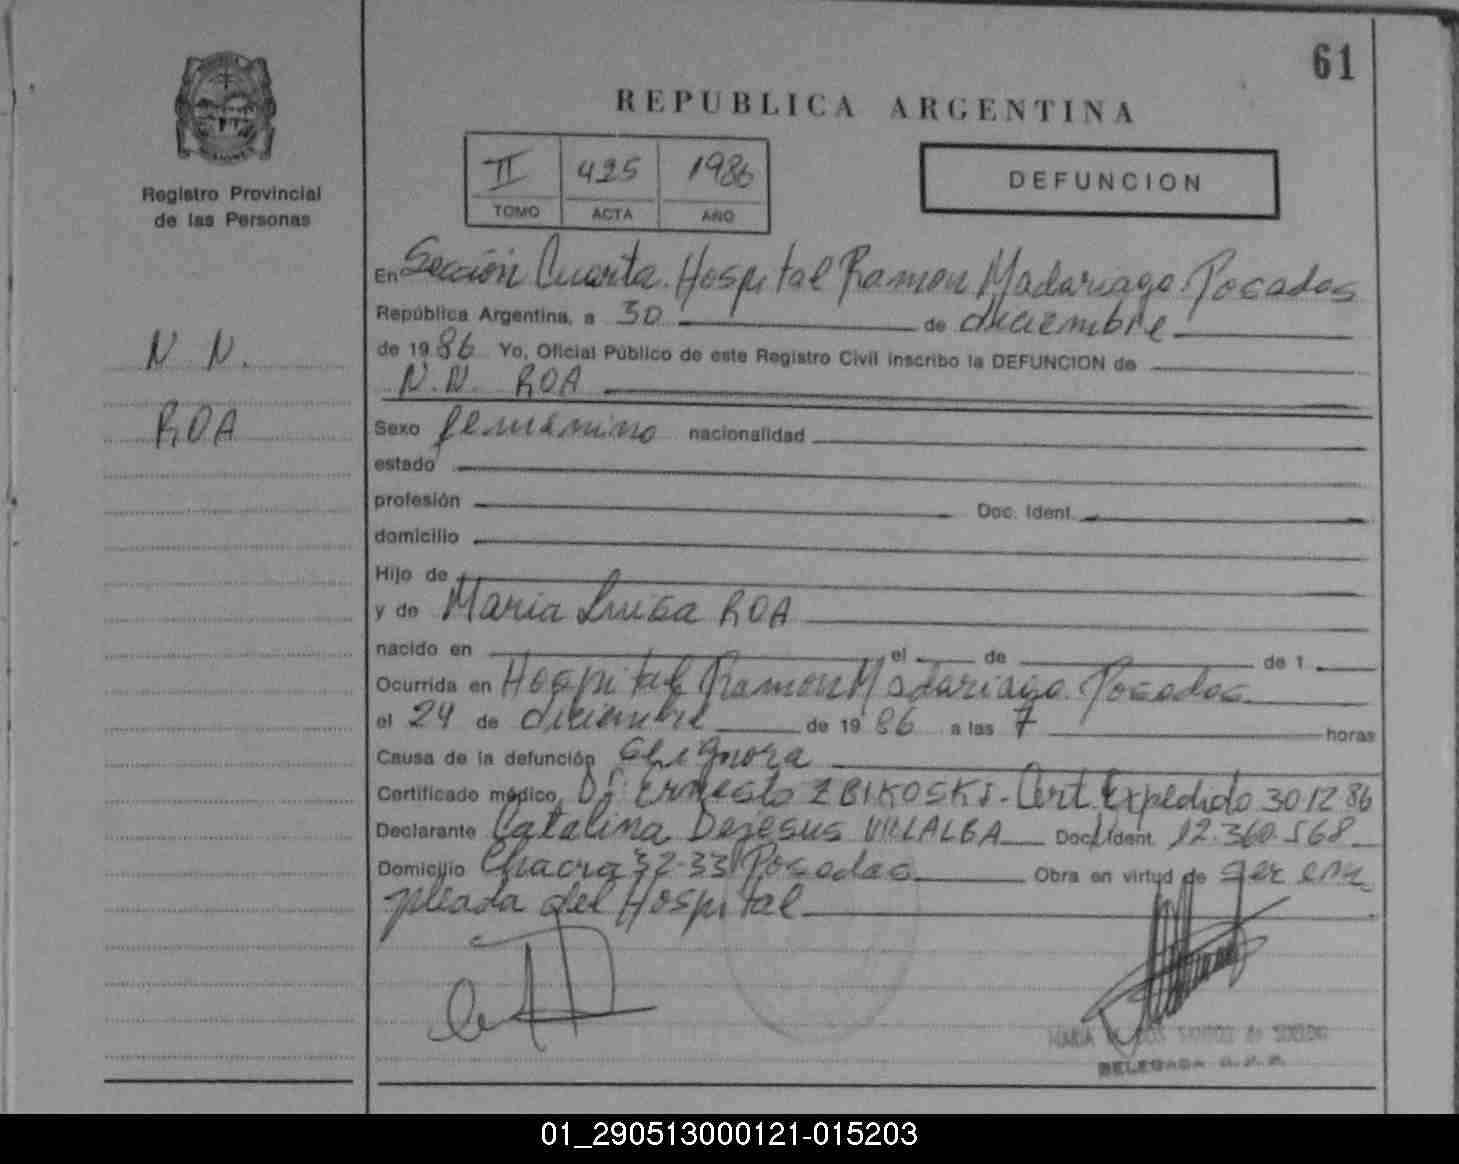 61
REPUBLICA ARGENTINA
Registro Provincial
de las Personas
II 425 1986
TOMO ACTA AÑO
DEFUNCION
N. N.
ROA
En Sección Cuarta. Hospital Ramon Madariaga. Posadas
República Argentina, a 30 de diciembre
de 1986 Yo, Oficial Público de este Registro Civil inscribo la DEFUNCION de
N.N. ROA
Sexo femenino nacionalidad
estado
profesión Doc. Ident.
domicilio
Hijo de
y de Maria Luisa ROA
nacido en el de de 1
Ocurrida en Hospital Ramon Madariaga. Posadas
el 24 de diciembre de 1986 a las 7 horas
Causa de la defunción Se ignora
Certificado médico Dr Ernesto ZBIKOSKI. Cert. Expedido 30 12 86
Declarante Catalina Dejesus VILLALBA Doc. Ident. 12.360.568
Domicilio Chacra 32-33 Posadas Obra en virtud de ser em
pleada del Hospital
MARIA DOS SANTOS de
DELEGADA R.P.P.
01_290513000121-015203